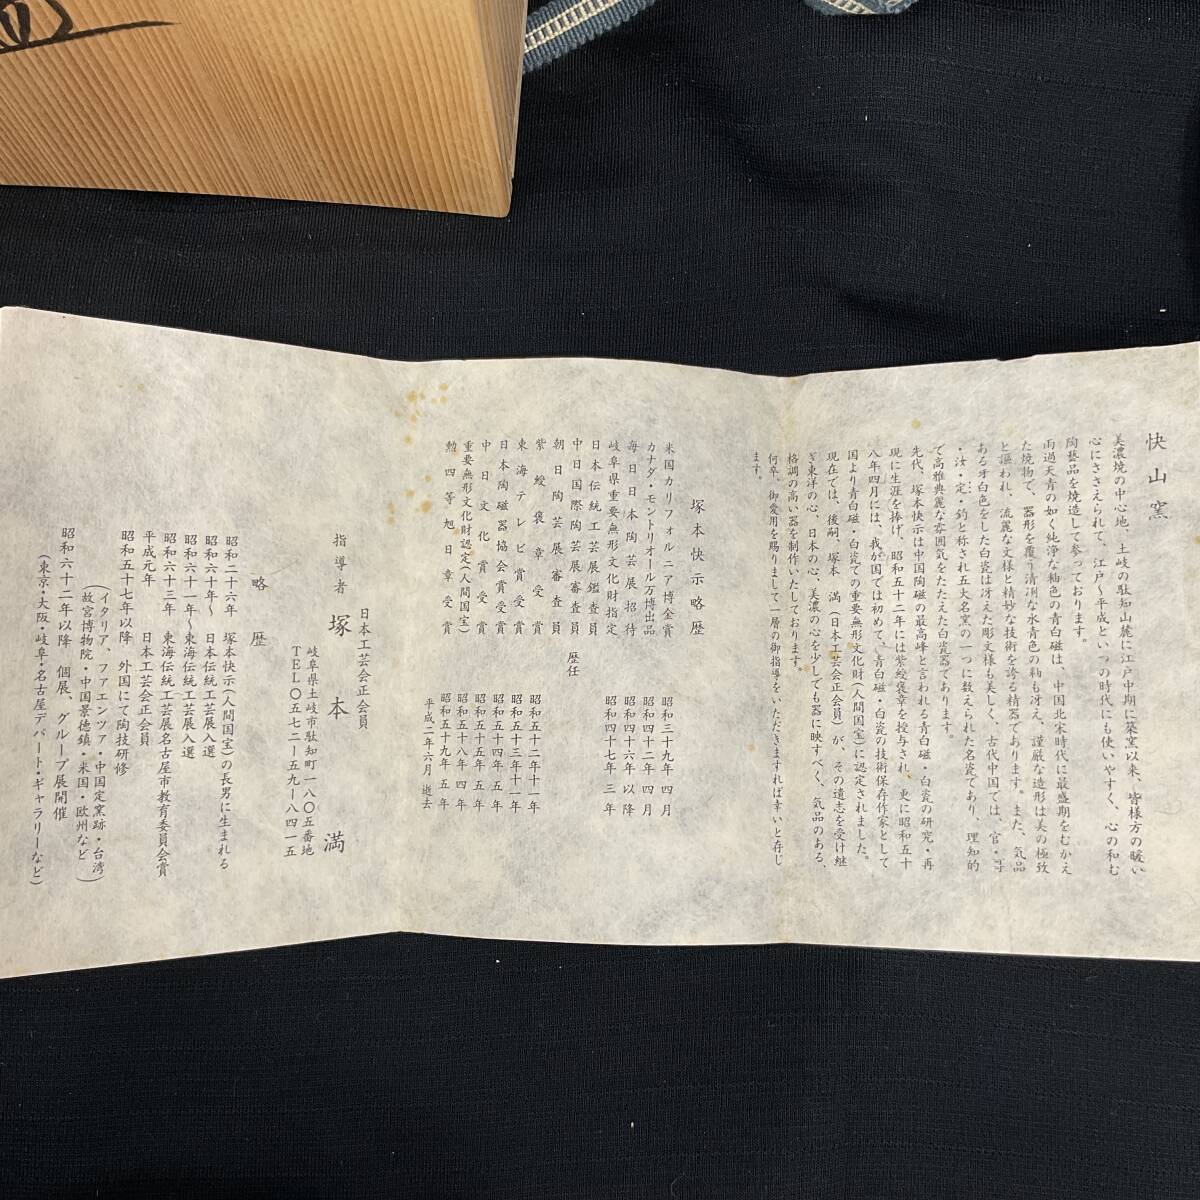 快山窯
美濃焼の中心地、土岐の駄知山麓に江戸中期に築窯以来、皆様方の暖い
心にささえられて、江戸～平成といつの時代にも使いやすく、心の和む
陶藝品を焼造して参っております。
雨過天青の如く純浄な釉色の青白磁は、中国北宋時代に最盛期をむかえ
た焼物で、器形を覆う清冽な水青色の釉も冴え、謹厳な造形は美の極致
と謳われ、流麗な文様と精妙な技術を誇る精器であります。また、気品
ある牙白色をした白瓷は冴えた彫文様も美しく、古代中国では、官・哥
・汝・定・鈞と称され五大名窯の一つに数えられた名瓷であり、理知的
で高雅典麗な雰囲気をたたえた白瓷器であります。
先代、塚本快示は中国陶磁の最高峰と言われる青白磁・白瓷の研究・再
現に生涯を捧げ、昭和五十二年には紫綬褒章を授与され、更に昭和五十
八年四月には、我が国では初めて、青白磁・白瓷の技術保存作家として
国より青白磁・白瓷での重要無形文化財（人間国宝）に認定されました。
現在では、後嗣、塚本　満（日本工芸会正会員）が、その遺志を受け継
ぎ東洋の心、日本の心、美濃の心を少しでも器に映すべく、気品のある、
格調の高い器を制作いたしております。
何卒、御愛用を賜りまして一層の御指導をいただきますれば幸いと存じ
ます。
塚本快示略歴
米国カリフォルニア博金賞　昭和三十九年四月
カナダ・モントリオール万博出品　昭和四十二年四月
毎日日本陶芸展招待　昭和四十六年以降
岐阜県重要無形文化財指定　昭和四十七年三年
日本伝統工芸展鑑査員
中日国際陶芸展審査員　歴任
朝日陶芸展審査員
紫綬褒章受賞　昭和五十二年十一年
東海テレビ賞受賞　昭和五十三年十一年
日本陶磁器協会賞受賞　昭和五十四年五年
中日文化賞受賞　昭和五十五年五年
重要無形文化財認定（人間国宝）　昭和五十八年四年
勲四等旭日章受賞　昭和五十九年五年
平成二年六月　逝去
日本工芸会正会員
指導者　塚本　満
岐阜県土岐市駄知町一八〇五番地
TEL〇五七二ー五九ー八四一五
略歴
昭和二十六年　塚本快示（人間国宝）の長男に生まれる
昭和六十年～　日本伝統工芸展入選
昭和六十一年～東海伝統工芸展入選
昭和六十三年　東海伝統工芸展名古屋市教育委員会賞
平成元年　日本工芸会正会員
昭和五十七年以降　外国にて陶技研修
（イタリア、ファエンツァ・中国定窯跡・台湾
故宮博物院・中国景徳鎮・米国・欧州など）
昭和六十二年以降　個展、グループ展開催
（東京・大阪・岐阜・名古屋デパート・ギャラリーなど）